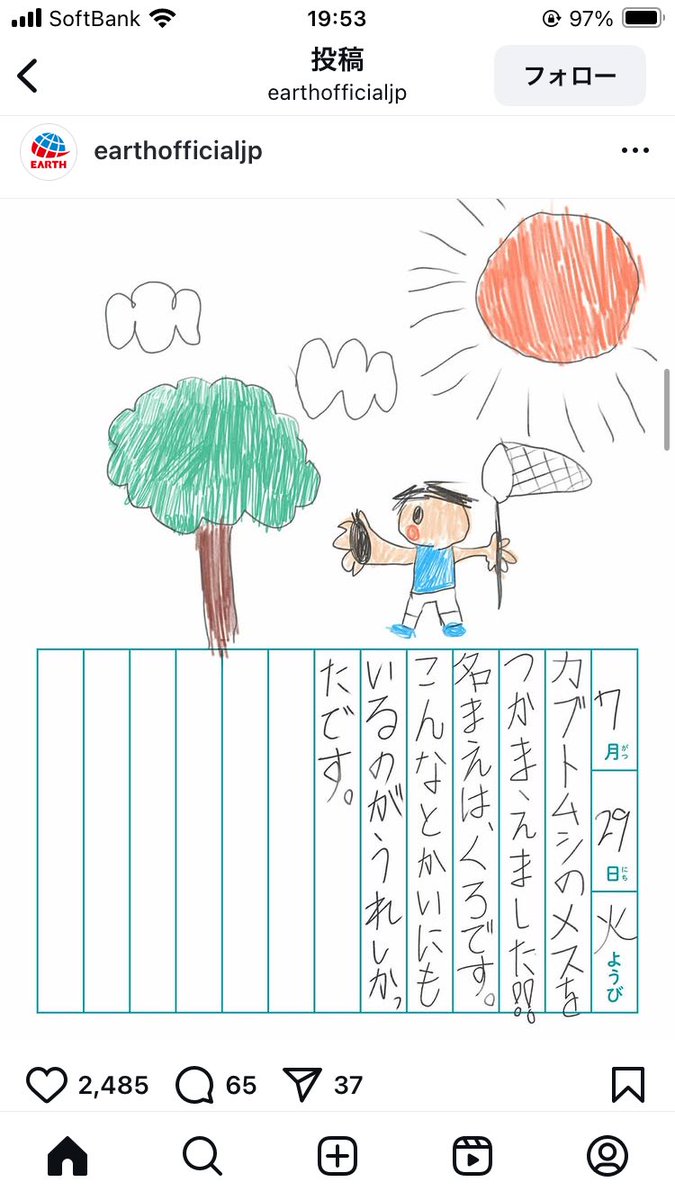 SoftBank
19:53
97%
投稿
earthofficialjp
フォロー
EARTH
earthofficialjp
7月がつ29日にち火ようび
カブトムシのメスを
つかまえました!!
名まえは、くろです。
こんなとかいにも
いるのがうれしかっ
たです。
2,485
65
37